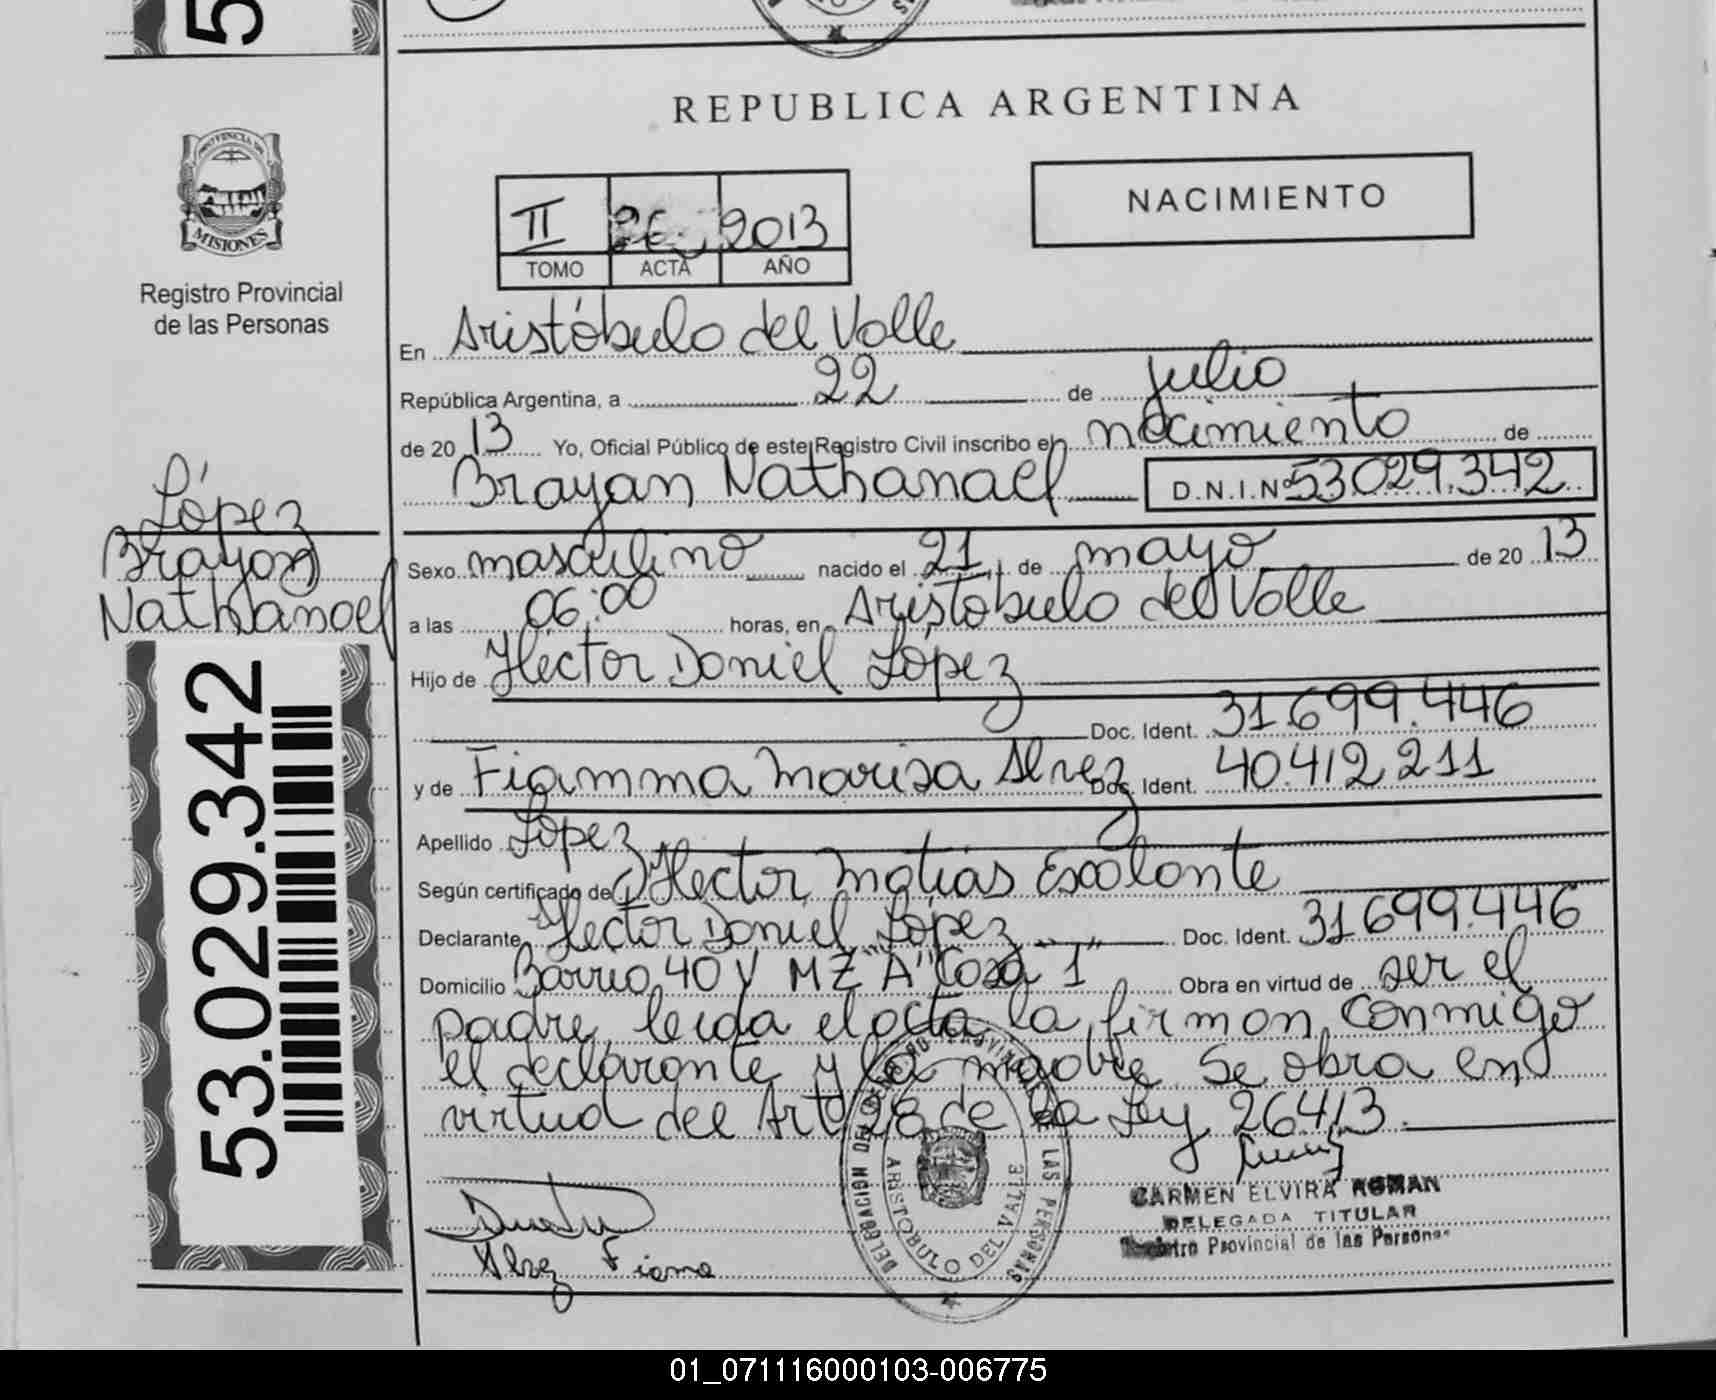 REPUBLICA ARGENTINA
NACIMIENTO
PROVINCIA DE
MISIONES
Registro Provincial
de las Personas
II 2013
TOMO ACTA AÑO
En Aristóbulo del Valle
República Argentina, a 22 de julio
de 20 13 Yo, Oficial Público de este Registro Civil inscribo el nacimiento de
Brayan Nathanael D.N.I.Nº 53.029.342
López
Brayan
Nathanael
Sexo masculino nacido el 21 de mayo de 20 13
a las 06:00 horas, en Aristobulo del Valle
Hijo de Hector Daniel López
Doc. Ident. 31.699.446
y de Fiamma Marisa Alvez Doc. Ident. 40.412.211
Apellido López
Según certificado de Hector Matias Escalante
Declarante Hector Daniel López Doc. Ident. 31.699.446
Domicilio Barrio 40 V MZ "A" Casa "1" Obra en virtud de ser el
padre, leida el acta, la firman conmigo
el declarante y la madre. Se obra en
virtud del Art 28 de la Ley 26413.
53.029.342
CARMEN ELVIRA ROMAN
DELEGADA TITULAR
Registro Provincial de las Personas
Alvez Fiama
DELEGACION DEL REGISTRO PROVINCIAL DE LAS PERSONAS
ARISTOBULO DEL VALLE
01_071116000103-006775